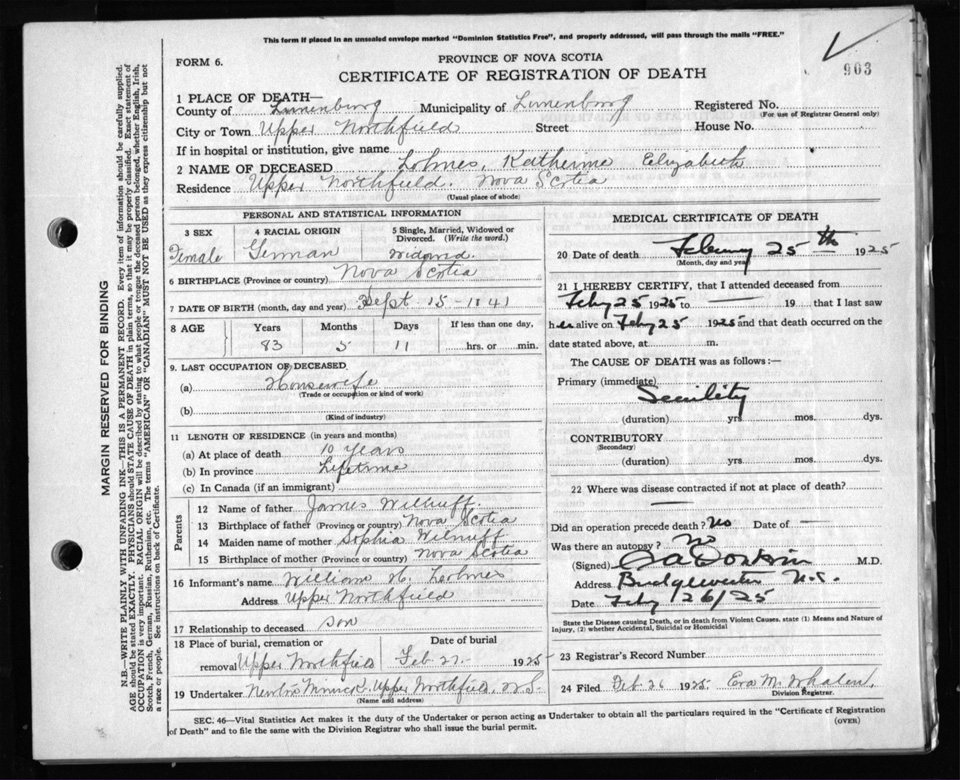 This form if placed in an unsealed envelope marked "Dominion Statistics Free", and properly addressed, will pass through the mails "FREE."
FORM 6.
PROVINCE OF NOVA SCOTIA
CERTIFICATE OF REGISTRATION OF DEATH
903
1 PLACE OF DEATH—
County of Lunenburg Municipality of Lunenburg Registered No.
(For use of Registrar General only)
City or Town Upper Northfield Street House No.
If in hospital or institution, give name
2 NAME OF DECEASED Lohnes, Katherine Elizabeth
Residence Upper Northfield. Nova Scotia
(Usual place of abode)
MARGIN RESERVED FOR BINDING
N.B.—WRITE PLAINLY WITH UNFADING INK—THIS IS A PERMANENT RECORD. Every item of information should be carefully supplied.
AGE should be stated EXACTLY. PHYSICIANS should STATE CAUSE OF DEATH in plain terms, so that it may be properly classified. Exact statement of
OCCUPATION is very important. RACIAL ORIGIN will be described by stating to what people or tongue the deceased person belonged, whether English, Irish,
Scotch, French, German, Russian, Ruthenian, etc. The terms "AMERICAN" OR "CANADIAN" MUST NOT BE USED as they express citizenship but not
a race or people. See instructions on back of Certificate.
PERSONAL AND STATISTICAL INFORMATION
3 SEX
Female
4 RACIAL ORIGIN
German
5 Single, Married, Widowed or
Divorced. (Write the word.)
Widowed
6 BIRTHPLACE (Province or country) Nova Scotia
7 DATE OF BIRTH (month, day and year) Sept 15-1841
8 AGE
Years Months Days If less than one day,
83 5 11 hrs. or min.
9. LAST OCCUPATION OF DECEASED
(a) Housewife
(Trade or occupation or kind of work)
(b)
(Kind of industry)
11 LENGTH OF RESIDENCE (in years and months)
(a) At place of death 10 years
(b) In province Lifetime
(c) In Canada (if an immigrant)
Parents
12 Name of father James Wilhuff
13 Birthplace of father (Province or country) Nova Scotia
14 Maiden name of mother Sophia Wilhuff
15 Birthplace of mother (Province or country) Nova Scotia
16 Informant's name William H. Lohnes
Address Upper Northfield
17 Relationship to deceased son
18 Place of burial, cremation or
removal Upper Northfield
Date of burial
Feb 27 1925
19 Undertaker Upper Northfield, N.S.
(Name and address)
MEDICAL CERTIFICATE OF DEATH
20 Date of death February 25th 1925
(Month, day and year)
21 I HEREBY CERTIFY, that I attended deceased from
Feby 25 1925 to — 19 that I last saw
her alive on Feby 25 1925 and that death occurred on the
date stated above, at m.
The CAUSE OF DEATH was as follows:—
Primary (immediate)
Senility
(duration) yrs. mos. dys.
CONTRIBUTORY
(Secondary)
(duration) yrs. mos. dys.
22 Where was disease contracted if not at place of death?
—
Did an operation precede death? No Date of —
Was there an autopsy? No
(Signed) M.D.
Address Bridgewater N.S.
Date Feby 26/25
State the Disease causing Death, or in death from Violent Causes, state (1) Means and Nature of
Injury, (2) whether Accidental, Suicidal or Homicidal
23 Registrar's Record Number
24 Filed Feb. 26 1925 Eva M. Whalen,
Division Registrar.
SEC. 46—Vital Statistics Act makes it the duty of the Undertaker or person acting as Undertaker to obtain all the particulars required in the "Certificate of Registration
of Death" and to file the same with the Division Registrar who shall issue the burial permit.
(OVER)